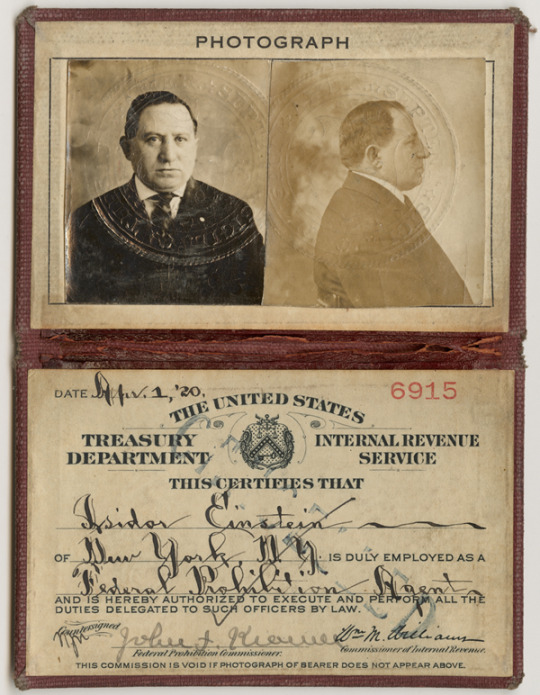 PHOTOGRAPH
DATE Apr. 1, '20. 6915
THE UNITED STATES
TREASURY INTERNAL REVENUE
DEPARTMENT SERVICE
THIS CERTIFIES THAT
Isidor Einstein
OF New York, N.Y. IS DULY EMPLOYED AS A
Federal Prohibition Agent
AND IS HEREBY AUTHORIZED TO EXECUTE AND PERFORM ALL THE
DUTIES DELEGATED TO SUCH OFFICERS BY LAW.
Countersigned
John F. Kramer Wm M. Williams
Federal Prohibition Commissioner. Commissioner of Internal Revenue.
THIS COMMISSION IS VOID IF PHOTOGRAPH OF BEARER DOES NOT APPEAR ABOVE.